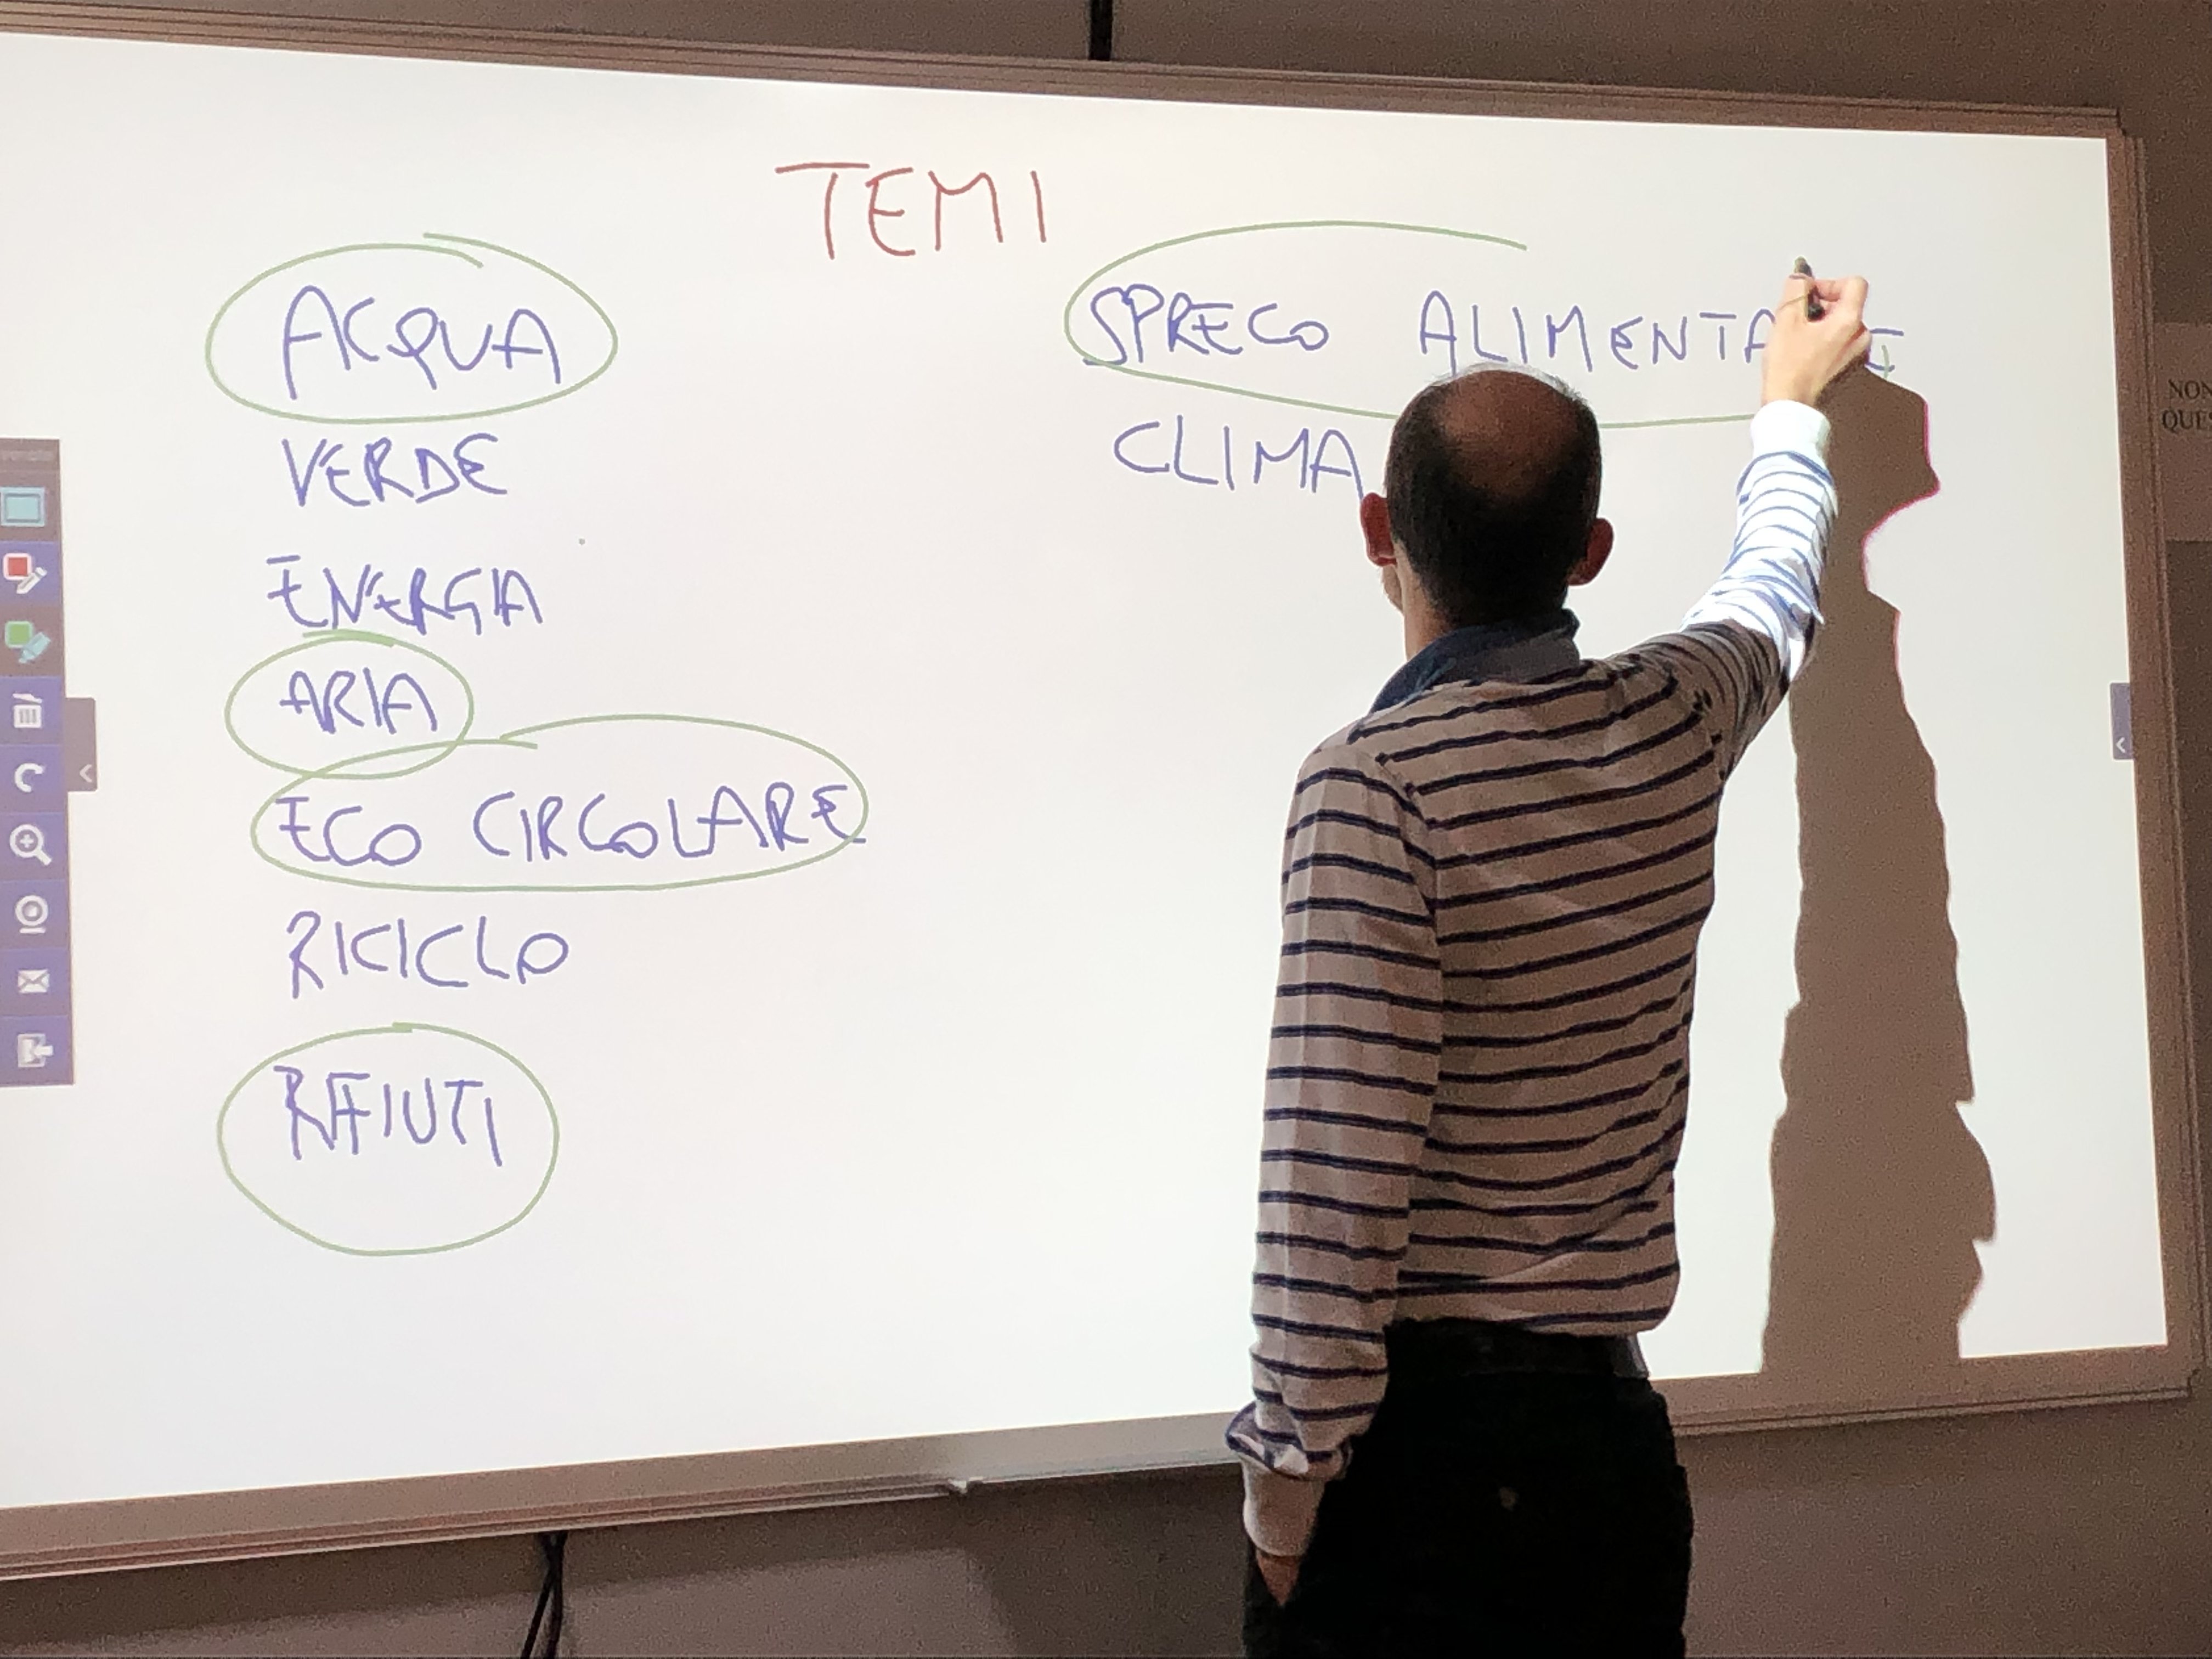 TEMI
ACQUA
VERDE
ENERGIA
ARIA
ECO CIRCOLARE
RICICLO
RIFIUTI
SPRECO
CLIMA
NON